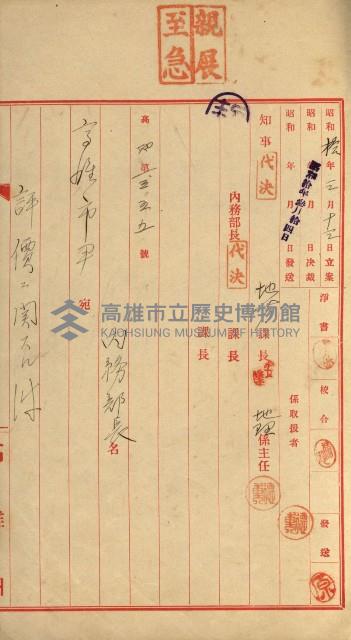 親展
至急
昭和拾年三月十三日立案
昭和 年 月 日決裁
昭和拾年參月拾四日
昭和 年 月 日發送
淨書
校合
發送
係取扱者
知事代決
內務部長代決
地 課長
課長
課長
地理係主任
高 第 號
高雄市尹 宛
內務部長 名
評價ニ関スル件
高雄市立歷史博物館
KAOHSIUNG MUSEUM OF HISTORY
高雄州